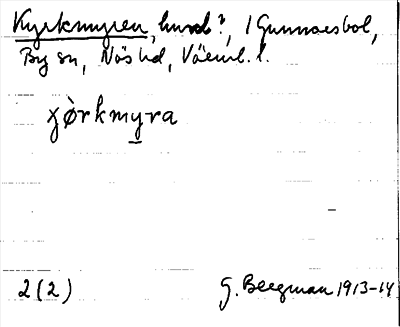 Kyrkmyren, hund?, 1 Gunnarsbol,
By sn, Näs hd, Värml. l.
χø̀rkmyra
2(2) G. Bergman 1913-14